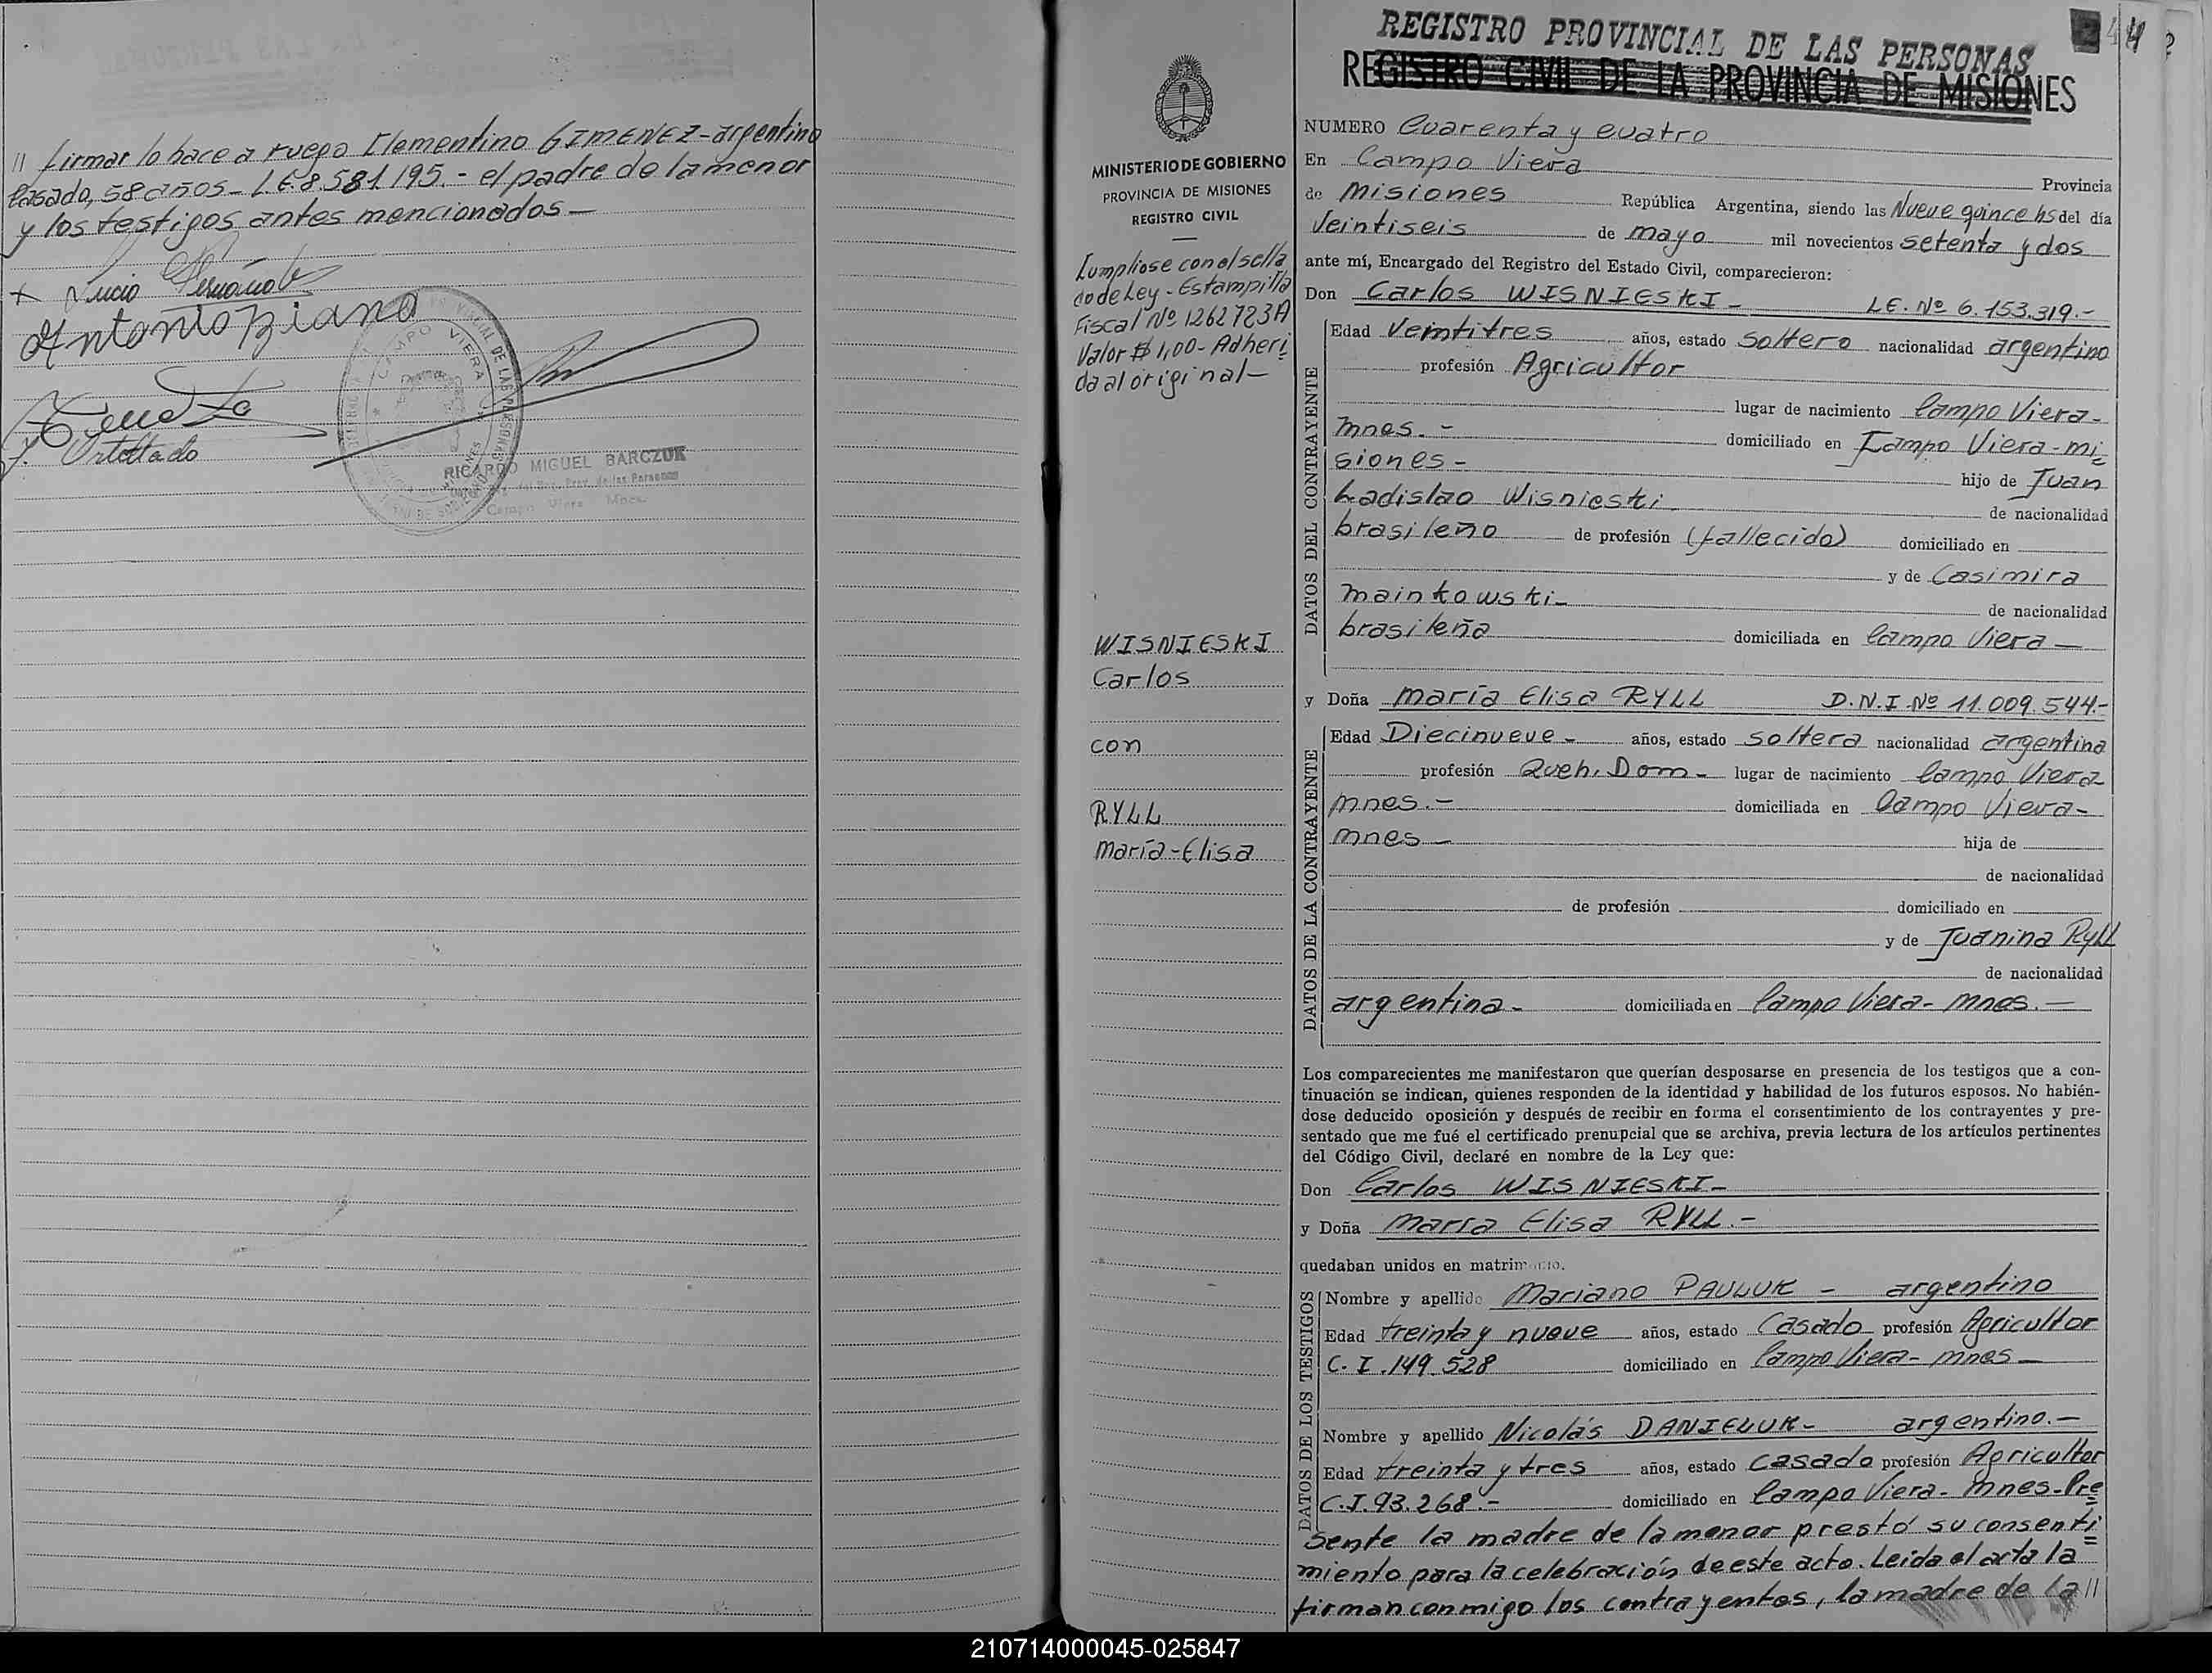 // firmar lo hace a ruego Clementino GIMENEZ - argentino
Casado, 58 años - L.E. 8.581.195.- el padre de la menor
y los testigos antes mencionados -
Lucio
Antonio
Ortellado
CAMPO VIERA
RICARDO MIGUEL BARCZUK
Campo Viera Mnes.
REGISTRO PROVINCIAL DE LAS PERSONAS
REGISTRO CIVIL DE LA PROVINCIA DE MISIONES
MINISTERIO DE GOBIERNO
PROVINCIA DE MISIONES
REGISTRO CIVIL
Cumpliose con el sella
do de Ley - Estampilla
Fiscal Nº 1262723A
Valor $ 1,00 - Adheri
da al original -
WISNIESKI
Carlos
con
RYLL
María-Elisa
NUMERO Cuarenta y cuatro
En Campo Viera
Provincia
de Misiones República Argentina, siendo las Nueve quince hs del día
Veintiseis de mayo mil novecientos setenta y dos
ante mí, Encargado del Registro del Estado Civil, comparecieron:
Don Carlos WISNIESKI - L.E. Nº 6.153.319.-
DATOS DEL CONTRAYENTE
Edad Veintitres años, estado soltero nacionalidad argentino
profesión Agricultor
lugar de nacimiento Campo Viera -
Mnes. - domiciliado en Campo Viera - Mi
siones - hijo de Juan
Ladislao Wisnieski de nacionalidad
brasileño de profesión (fallecido) domiciliado en
y de Casimira
Mainkowski - de nacionalidad
brasileña domiciliada en Campo Viera -
y Doña María Elisa RYLL D.N.I Nº 11.009.544.-
DATOS DE LA CONTRAYENTE
Edad Diecinueve - años, estado soltera nacionalidad argentina
profesión Queh. Dom - lugar de nacimiento Campo Viera
Mnes. - domiciliada en Campo Viera -
Mnes - hija de
de nacionalidad
de profesión domiciliado en
y de Juanina Ryll
de nacionalidad
argentina - domiciliada en Campo Viera - Mnes. -
Los comparecientes me manifestaron que querían desposarse en presencia de los testigos que a con-
tinuación se indican, quienes responden de la identidad y habilidad de los futuros esposos. No habién-
dose deducido oposición y después de recibir en forma el consentimiento de los contrayentes y pre-
sentado que me fué el certificado prenupcial que se archiva, previa lectura de los artículos pertinentes
del Código Civil, declaré en nombre de la Ley que:
Don Carlos WISNIESKI -
y Doña María Elisa RYLL. -
quedaban unidos en matrimonio.
DATOS DE LOS TESTIGOS
Nombre y apellido Mariano PAULUK - argentino
Edad treinta y nueve años, estado Casado profesión Agricultor
C. I. 149.528 domiciliado en Campo Viera - Mnes -
Nombre y apellido Nicolás DANIELUK - argentino. -
Edad treinta y tres años, estado Casado profesión Agricultor
C.I. 93.268. - domiciliado en Campo Viera - Mnes - Pre
sente la madre de la menor prestó su consenti
miento para la celebración de este acto. Leida el acta la
firman conmigo los contrayentes, la madre de la //
210714000045-025847